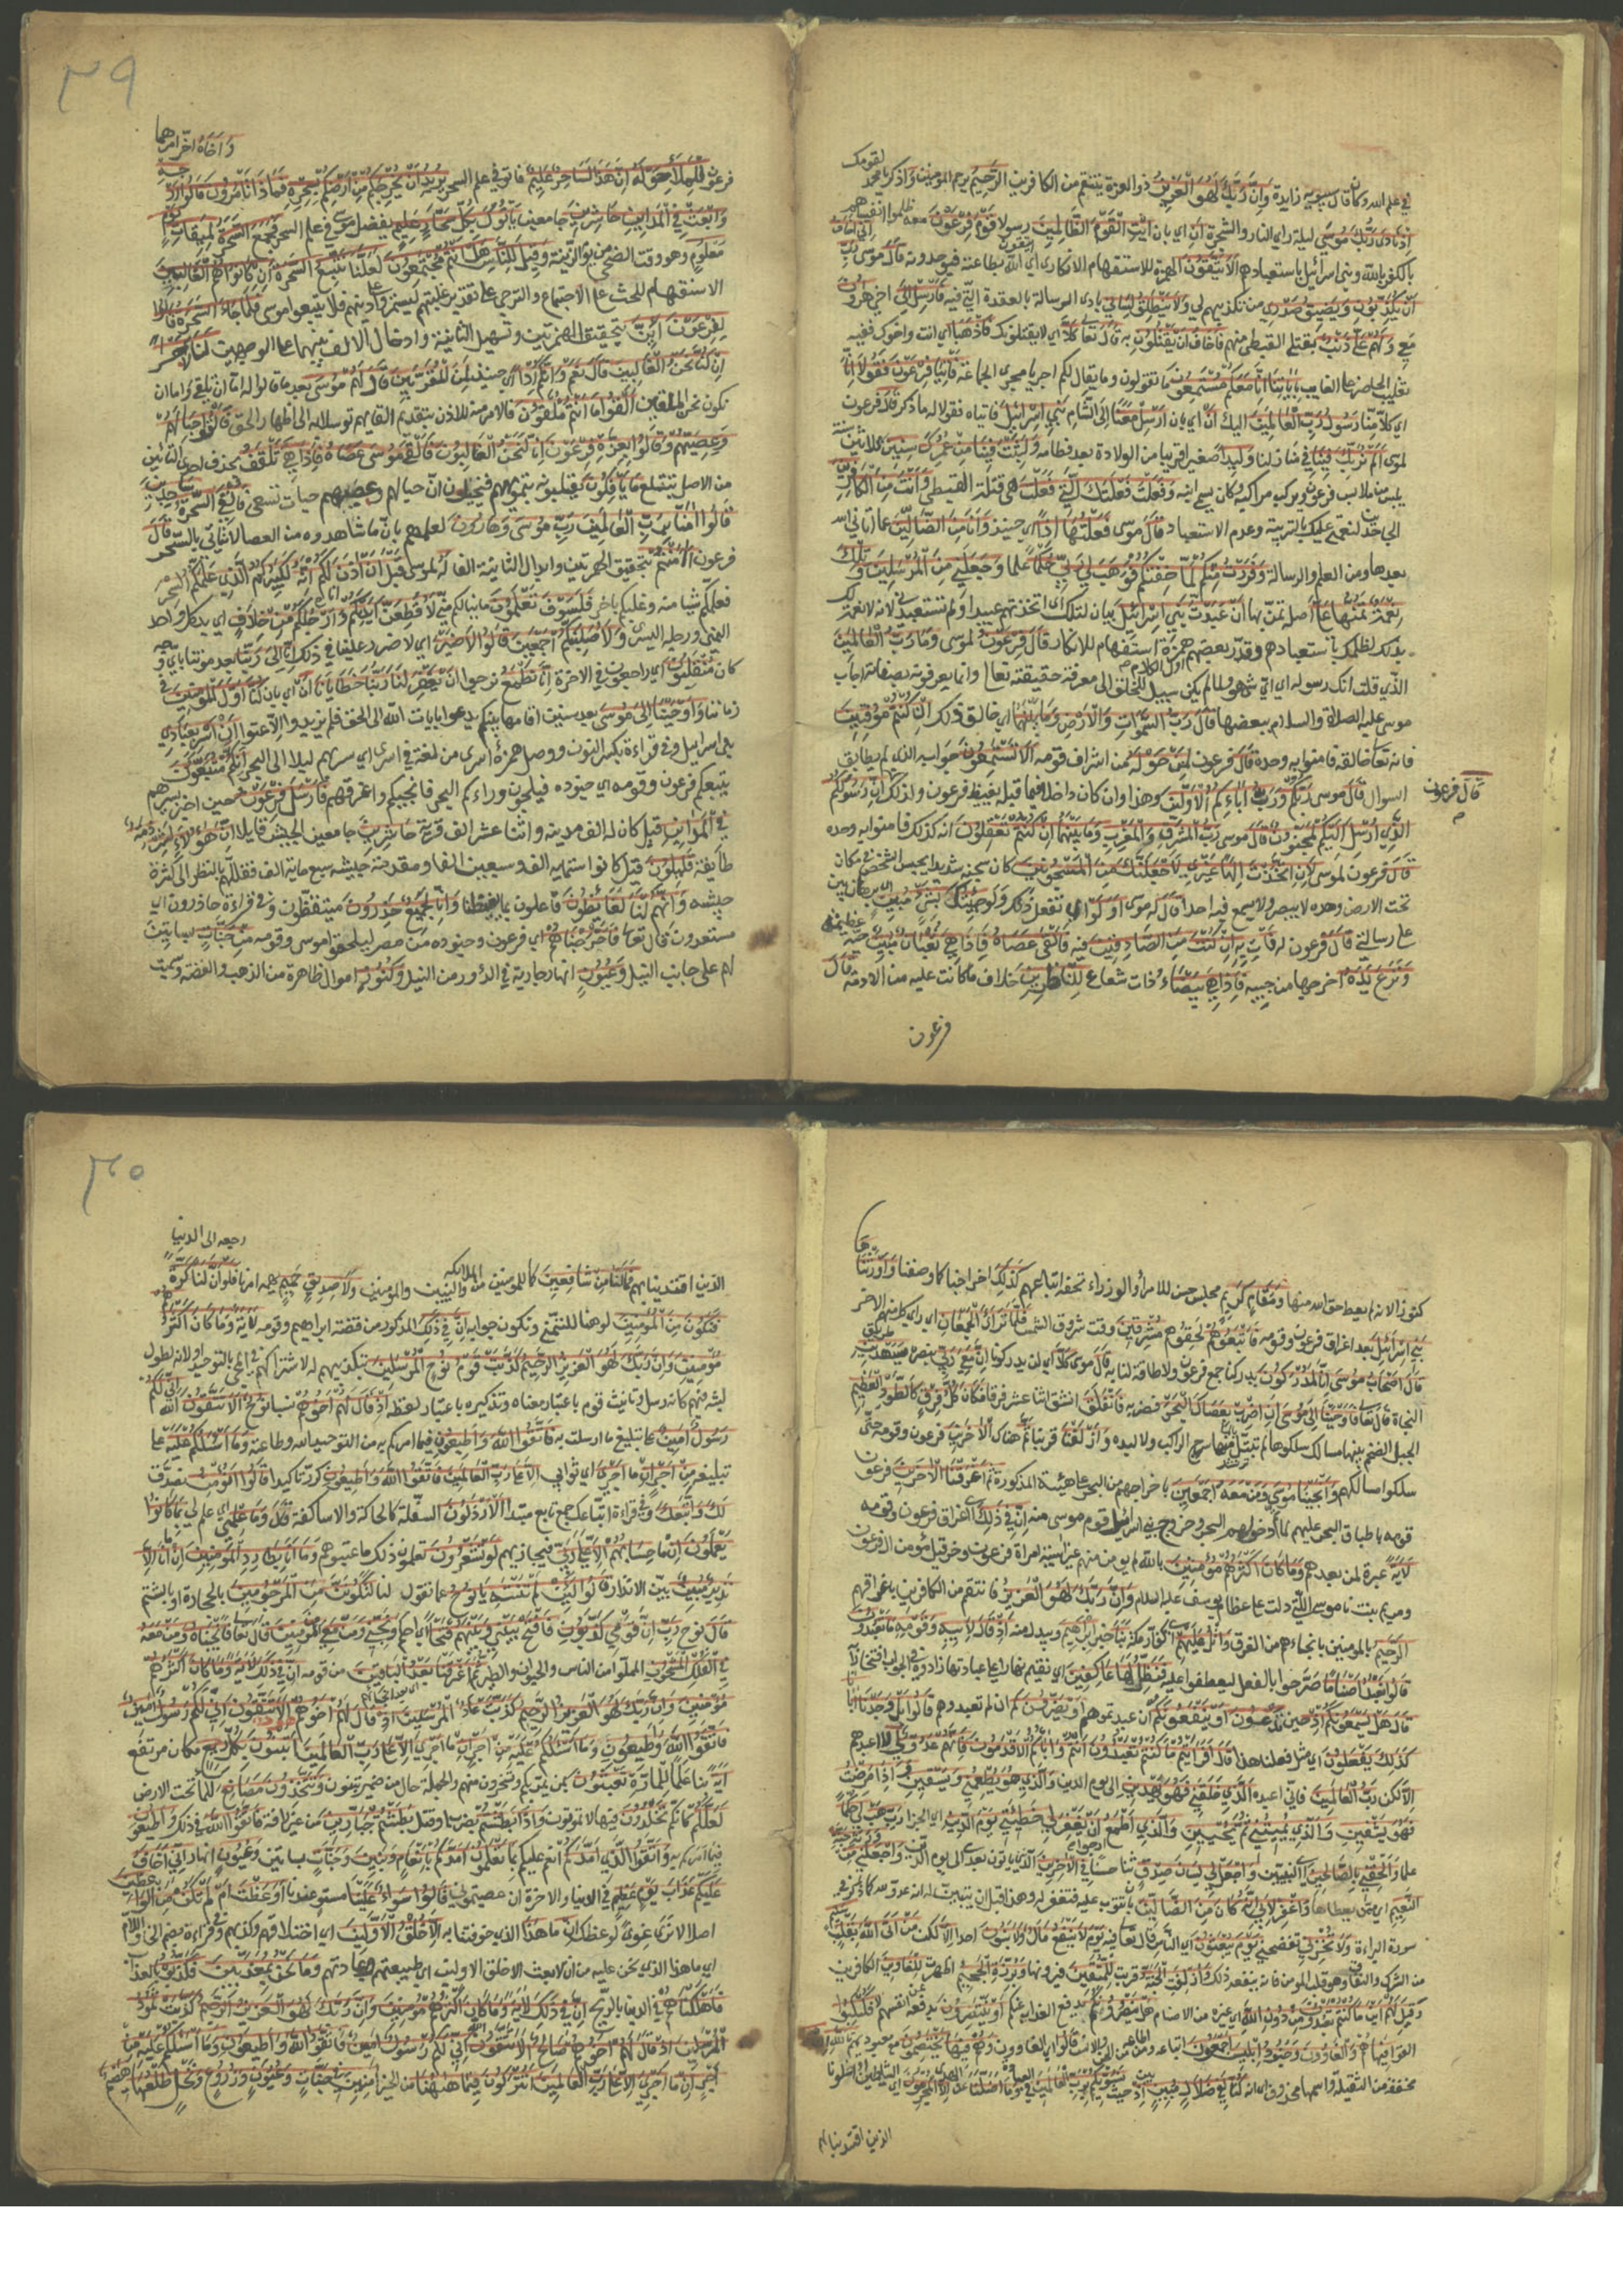 لقومك
في علم الله وكان قال سيبويه زايدة وَإِنَّ رَبَّكَ لَهُوَ الْعَزِيزُ ذو العزة ينتقم من الكافرين الرَّحِيمُ يرحم المومنين وَاذكر يا محمد
إِذْ نَادَى رَبُّكَ مُوسَى ليلة راى النار والشجرة أَنِ اي بان ائْتِ الْقَوْمَ الظَّالِمِينَ رسولا قَوْمَ فِرْعَوْنَ معه ظلموا انفسهم
بالكفر بالله وبني اسرائيل باستعبادهم أَلَا يَتَّقُونَ الهمزة للاستفهام الانكاري اي الله بطاعته فيوحدونه قَالَ موسى رَبِّ إِنِّي أَخَافُ
أَنْ يُكَذِّبُونِ وَيَضِيقُ صَدْرِي من تكذيبهم لي وَلَا يَنْطَلِقُ لِسَانِي بادى الرسالة للعقدة التي فيه فَأَرْسِلْ إِلَى اخي هَارُونَ
معي وَلَهُمْ عَلَيَّ ذَنْبٌ بقتلي القبطي منهم فَأَخَافُ أَنْ يَقْتُلُونِ به قَالَ تعالى كَلَّا اي لا يقتلونك فَاذْهَبَا اي انت واخوك ففيه
تغليب الحاضر على الغايب بِآيَاتِنَا إِنَّا مَعَكُمْ مُسْتَمِعُونَ ما تقولون وما يقال لكم اجريا مجرى الجماعة فَأْتِيَا فِرْعَوْنَ فَقُولَا إِنَّا
اي كلا منا رَسُولُ رَبِّ الْعَالَمِينَ اليك أَنْ اي بان أَرْسِلْ مَعَنَا الى الشام بَنِي إِسْرَائِيلَ فاتياه فقولا له ما ذكر قَالَ فرعون
لموسى أَلَمْ نُرَبِّكَ فِينَا في منازلنا وَلِيدًا صغيرا قريبا من الولادة بعد فطامه وَلَبِثْتَ فِينَا مِنْ عُمُرِكَ سِنِينَ ثلاثين سنة
يلبس من ملابس فرعون ويركب من مراكبه وكان يسمى ابنه وَفَعَلْتَ فَعْلَتَكَ الَّتِي فَعَلْتَ هي قتله القبطي وَأَنْتَ مِنَ الْكَافِرِينَ
الجاحدين لنعمتي عليك بالتربية وعدم الاستعباد قَالَ موسى فَعَلْتُهَا إِذًا اي حينئذ وَأَنَا مِنَ الضَّالِّينَ عما آتاني الله
بعدها من العلم والرسالة فَفَرَرْتُ مِنْكُمْ لَمَّا خِفْتُكُمْ فَوَهَبَ لِي رَبِّي حُكْمًا علما وَجَعَلَنِي مِنَ الْمُرْسَلِينَ وَتِلْكَ
نِعْمَةٌ تَمُنُّهَا عَلَيَّ اصله تمن بها أَنْ عَبَّدْتَ بَنِي إِسْرَائِيلَ بيان لتلك اي اتخذتهم عبيدا ولم تستعبدني لا نعمة لك
بذلك لظلمك باستعبادهم وقدر بعضهم همزة استفهام للانكار قَالَ فِرْعَوْنُ لموسى وَمَا رَبُّ الْعَالَمِينَ
الذي قلت انك رسوله اي اي شي هو ولما لم يكن سبيل للخلق الى معرفة حقيقته تعالى وانما يعرفونه بصفاته اجاب
موسى عليه الصلاة والسلام ببعضها قَالَ رَبُّ السَّمَوَاتِ وَالْأَرْضِ وَمَا بَيْنَهُمَا اي خالق ذلك إِنْ كُنْتُمْ مُوقِنِينَ
فانه تعالى خالقه فامنوا به وحده قَالَ فرعون لِمَنْ حَوْلَهُ من اشراف قومه أَلَا تَسْتَمِعُونَ جوابه الذي لم يطابق
السوال قَالَ موسى رَبُّكُمْ وَرَبُّ آبَائِكُمُ الْأَوَّلِينَ وهذا وان كان داخلا فيما قبله يغيظ فرعون ولذلك إِنَّ رَسُولَكُمُ
قَالَ فرعون
الَّذِي أُرْسِلَ إِلَيْكُمْ لَمَجْنُونٌ قَالَ موسى رَبُّ الْمَشْرِقِ وَالْمَغْرِبِ وَمَا بَيْنَهُمَا إِنْ كُنْتُمْ تَعْقِلُونَ انه كذلك فامنوا به وحده
قَالَ فرعون لموسى لَئِنِ اتَّخَذْتَ إِلَهًا غَيْرِي لَأَجْعَلَنَّكَ مِنَ الْمَسْجُونِينَ كان سجنه شديدا يحبس الشخص في مكان
تحت الارض وحده لا يبصر ولا يسمع فيه احدا قَالَ له موسى أَوَلَوْ اي اتفعل ذلك ولو جِئْتُكَ بِشَيْءٍ مُبِينٍ اي برهان بين
على رسالتي قَالَ فرعون له فَأْتِ بِهِ إِنْ كُنْتَ مِنَ الصَّادِقِينَ فيه فَأَلْقَى عَصَاهُ فَإِذَا هِيَ ثُعْبَانٌ مُبِينٌ حية عظيمة
وَنَزَعَ يَدَهُ اخرجها من جيبه فَإِذَا هِيَ بَيْضَاءُ ذات شعاع لِلنَّاظِرِينَ خلاف ما كانت عليه من الادمة قَالَ
فرعون
٣٩
وَأَخَاهُ اخر امرهما
فرعون لِلْمَلَأِ حَوْلَهُ إِنَّ هَذَا لَسَاحِرٌ عَلِيمٌ فايق في علم السحر يُرِيدُ أَنْ يُخْرِجَكُمْ مِنْ أَرْضِكُمْ بِسِحْرِهِ فَمَاذَا تَأْمُرُونَ قَالُوا أَرْجِهْ
وَابْعَثْ فِي الْمَدَائِنِ حَاشِرِينَ جامعين يَأْتُوكَ بِكُلِّ سَحَّارٍ عَلِيمٍ يفضل موسى في علم السحر فَجُمِعَ السَّحَرَةُ لِمِيقَاتِ يَوْمٍ
مَعْلُومٍ وهو وقت الضحى من يوم الزينة وَقِيلَ لِلنَّاسِ هَلْ أَنْتُمْ مُجْتَمِعُونَ لَعَلَّنَا نَتَّبِعُ السَّحَرَةَ إِنْ كَانُوا هُمُ الْغَالِبِينَ
الاستفهام للحث على الاجتماع والترجي على تقدير غلبتهم ليستمروا على دينهم فلا يتبعوا موسى فَلَمَّا جَاءَ السَّحَرَةُ قَالُوا
لِفِرْعَوْنَ أَئِنَّ بتحقيق الهمزتين وتسهيل الثانية وادخال الالف بينهما على الوجهين لَنَا لَأَجْرًا
إِنْ كُنَّا نَحْنُ الْغَالِبِينَ قَالَ نَعَمْ وَإِنَّكُمْ إِذًا اي حينئذ لَمِنَ الْمُقَرَّبِينَ قَالَ لَهُمْ مُوسَى بعد ما قالوا له اما ان تلقي واما ان
نكون نحن الملقين أَلْقُوا مَا أَنْتُمْ مُلْقُونَ فالامر منه للاذن بتقديم القايهم توسلا به الى اظهار الحق فَأَلْقَوْا حِبَالَهُمْ
وَعِصِيَّهُمْ وَقَالُوا بِعِزَّةِ فِرْعَوْنَ إِنَّا لَنَحْنُ الْغَالِبُونَ فَأَلْقَى مُوسَى عَصَاهُ فَإِذَا هِيَ تَلْقَفُ بحذف احدى التائين
من الاصل تبتلع مَا يَأْفِكُونَ يقلبونه بتمويههم فيخيلون ان حبالهم وعصيهم حيات تسعى فَأُلْقِيَ السَّحَرَةُ سَاجِدِينَ
قَالُوا آمَنَّا بِرَبِّ الْعَالَمِينَ رَبِّ مُوسَى وَهَارُونَ لعلمهم بان ما شاهدوه من العصا لا يتأتى بالسحر قَالَ
فرعون أَآمَنْتُمْ بتحقيق الهمزتين وابدال الثانية الفا لَهُ لموسى قَبْلَ أَنْ آذَنَ لَكُمْ إِنَّهُ لَكَبِيرُكُمُ الَّذِي عَلَّمَكُمُ السِّحْرَ
فعلمكم شيا منه وغلبكم باخر فَلَسَوْفَ تَعْلَمُونَ ما ينالكم مني لَأُقَطِّعَنَّ أَيْدِيَكُمْ وَأَرْجُلَكُمْ مِنْ خِلَافٍ اي يد كل واحد
اليمنى ورجله اليسرى وَلَأُصَلِّبَنَّكُمْ أَجْمَعِينَ قَالُوا لَا ضَيْرَ اي لا ضرر علينا في ذلك إِنَّا إِلَى رَبِّنَا بعد موتنا باي وجه
كان مُنْقَلِبُونَ اي راجعون في الاخرة إِنَّا نَطْمَعُ نرجو أَنْ يَغْفِرَ لَنَا رَبُّنَا خَطَايَانَا أَنْ اي بان كُنَّا أَوَّلَ الْمُؤْمِنِينَ في
زماننا وَأَوْحَيْنَا إِلَى مُوسَى بعد سنين اقامها بينهم يدعوا بايات الله الى الحق فلم يزيدوا الا عتوا أَنْ أَسْرِ بِعِبَادِي
بني اسرائيل وفي قراءة بكسر النون ووصل همزة اسرى من سرى لغة في اسرى اي سر بهم ليلا الى البحر إِنَّكُمْ مُتَّبَعُونَ
يتبعكم فرعون وقومه اي جنوده فيلجون وراءكم البحر فانجيكم واغرقهم فَأَرْسَلَ فِرْعَوْنُ حين اخبر بسيرهم
فِي الْمَدَائِنِ قيل كان له الف مدينة واثنا عشر الف قرية حَاشِرِينَ جامعين الجيش قايلا إِنَّ هَؤُلَاءِ لَشِرْذِمَةٌ
طايفة قَلِيلُونَ قيل كانوا ستماية الف وسبعين الفا ومقدمة جيشه سبع ماية الف فقللهم بالنظر الى كثرة
جيشه وَإِنَّهُمْ لَنَا لَغَائِظُونَ فاعلون ما يغيظنا وَإِنَّا لَجَمِيعٌ حَذِرُونَ متيقظون وفي قراءة حاذرون اي
مستعدون قال تعالى فَأَخْرَجْنَاهُمْ اي فرعون وجنوده من مصر ليلحقوا موسى وقومه مِنْ جَنَّاتٍ بساتين
لهم على جانب النيل وَعُيُونٍ انهار جارية في الدور من النيل وَكُنُوزٍ اموال ظاهرة من الذهب والفضة وسميت
كنوزا لانه لم يعط حق الله منها وَمَقَامٍ كَرِيمٍ مجلس حسن للامرا والوزراء تحفه اتباعهم كَذَلِكَ اخراجنا كما وصفنا وَأَوْرَثْنَاهَا
بَنِي إِسْرَائِيلَ بعد اغراق فرعون وقومه فَأَتْبَعُوهُمْ لحقوهم مُشْرِقِينَ وقت شروق الشمس فَلَمَّا تَرَاءَى الْجَمْعَانِ اي راى كل منهم الاخر
قَالَ أَصْحَابُ مُوسَى إِنَّا لَمُدْرَكُونَ يدركنا جمع فرعون ولا طاقة لنا به قَالَ موسى كَلَّا اي لن يدركونا إِنَّ مَعِيَ رَبِّي بنصره سَيَهْدِينِ طريق
النجاة قال تعالى فَأَوْحَيْنَا إِلَى مُوسَى أَنِ اضْرِبْ بِعَصَاكَ الْبَحْرَ فضربه فَانْفَلَقَ انشق اثنا عشر فرقا فَكَانَ كُلُّ فِرْقٍ كَالطَّوْدِ الْعَظِيمِ
الجبل الضخم بينها مسالك سلكوها لم يبتل منها سرج الراكب ولا لبده وَأَزْلَفْنَا قربنا ثَمَّ هناك الْآخَرِينَ فرعون وقومه حتى
سلكوا مسالكهم وَأَنْجَيْنَا مُوسَى وَمَنْ مَعَهُ أَجْمَعِينَ باخراجهم من البحر على هيئته المذكورة ثُمَّ أَغْرَقْنَا الْآخَرِينَ فرعون
وقومه باطباق البحر عليهم لما تم دخولهم البحر وخروج بني اسرائيل قوم موسى منه إِنَّ فِي ذَلِكَ اي اغراق فرعون وقومه
لَآيَةً عبرة لمن بعدهم وَمَا كَانَ أَكْثَرُهُمْ مُؤْمِنِينَ بالله لم يومن منهم غير آسية امراة فرعون وحزقيل مؤمن ال فرعون
ومريم بنت ناموسى التي دلت على عظام يوسف عليه السلام وَإِنَّ رَبَّكَ لَهُوَ الْعَزِيزُ فانتقم من الكافرين باغراقهم
الرَّحِيمُ بالمومنين بانجاءهم من الغرق وَاتْلُ عَلَيْهِمْ اي كفار مكة نَبَأَ خبر إِبْرَاهِيمَ ويبدل منه إِذْ قَالَ لِأَبِيهِ وَقَوْمِهِ مَا تَعْبُدُونَ
قَالُوا نَعْبُدُ أَصْنَامًا صرحوا بالفعل ليعطفوا عليه فَنَظَلُّ لَهَا عَاكِفِينَ اي نقيم نهارا على عبادتها زادوه في الجواب افتخارا به
قَالَ هَلْ يَسْمَعُونَكُمْ إِذْ حين تَدْعُونَ أَوْ يَنْفَعُونَكُمْ ان عبدتموهم أَوْ يَضُرُّونَ كم ان لم تعبدوهم قَالُوا بَلْ وَجَدْنَا آبَاءَنَا
كَذَلِكَ يَفْعَلُونَ اي مثل فعلنا هذا قَالَ أَفَرَأَيْتُمْ مَا كُنْتُمْ تَعْبُدُونَ أَنْتُمْ وَآبَاؤُكُمُ الْأَقْدَمُونَ فَإِنَّهُمْ عَدُوٌّ لِي لا اعبدهم
إِلَّا لكن رَبَّ الْعَالَمِينَ فاني اعبده الَّذِي خَلَقَنِي فَهُوَ يَهْدِينِ الى يوم الدين وَالَّذِي هُوَ يُطْعِمُنِي وَيَسْقِينِ وَإِذَا مَرِضْتُ
فَهُوَ يَشْفِينِ وَالَّذِي يُمِيتُنِي ثُمَّ يُحْيِينِ وَالَّذِي أَطْمَعُ أَنْ يَغْفِرَ لِي خَطِيئَتِي يَوْمَ الدِّينِ اي الجزا رَبِّ هَبْ لِي حُكْمًا
علما وَأَلْحِقْنِي بِالصَّالِحِينَ اي النبيين وَاجْعَلْ لِي لِسَانَ صِدْقٍ ثنا حسنا فِي الْآخِرِينَ الذين ياتون بعدي الى يوم الدين وَاجْعَلْنِي مِنْ وَرَثَةِ جَنَّةِ
النَّعِيمِ اي ممن يعطاها وَاغْفِرْ لِأَبِي إِنَّهُ كَانَ مِنَ الضَّالِّينَ بان تتوب عليه فتغفر له وهذا قبل ان يتبين له انه عدو لله كما ذكر في
سورة البراءة وَلَا تُخْزِنِي تفضحني يَوْمَ يُبْعَثُونَ اي الناس قال تعالى فيه يَوْمَ لَا يَنْفَعُ مَالٌ وَلَا بَنُونَ احدا إِلَّا لكن مَنْ أَتَى اللَّهَ بِقَلْبٍ سَلِيمٍ
من الشرك والنفاق وهو قلب المومن فانه ينفعه ذلك وَأُزْلِفَتِ الْجَنَّةُ قربت لِلْمُتَّقِينَ فيرونها وَبُرِّزَتِ الْجَحِيمُ اظهرت لِلْغَاوِينَ الكافرين
وَقِيلَ لَهُمْ أَيْنَ مَا كُنْتُمْ تَعْبُدُونَ مِنْ دُونِ اللَّهِ اي غيره من الاصنام هَلْ يَنْصُرُونَكُمْ بدفع العذاب عنكم أَوْ يَنْتَصِرُونَ بدفعه عن انفسهم لا فَكُبْكِبُوا
القوا فِيهَا هُمْ وَالْغَاوُونَ وَجُنُودُ إِبْلِيسَ اتباعه ومن اطاعه من الجن والانس أَجْمَعُونَ قَالُوا اي الغاوون وَهُمْ فِيهَا يَخْتَصِمُونَ مع معبوديهم تَاللَّهِ إِنْ
مخففة من الثقيلة واسمها محذوف اي انه كُنَّا لَفِي ضَلَالٍ مُبِينٍ بين إِذْ حيث نُسَوِّيكُمْ بِرَبِّ الْعَالَمِينَ في العبادة وَمَا أَضَلَّنَا عن الهدى إِلَّا الْمُجْرِمُونَ اي الشياطين او اولونا
الذين اقتدينا بهم
٣٠
رجعة الى الدنيا
الذين اقتدينا بهم فَمَا لَنَا مِنْ شَافِعِينَ كما للمومنين من الملائكة والنبيين والمومنين وَلَا صَدِيقٍ حَمِيمٍ يهمه امرنا فَلَوْ أَنَّ لَنَا كَرَّةً
فَنَكُونَ مِنَ الْمُؤْمِنِينَ لو هنا للتمني ونكون جوابه إِنَّ فِي ذَلِكَ المذكور من قصة ابراهيم وقومه لَآيَةً وَمَا كَانَ أَكْثَرُهُمْ
مُؤْمِنِينَ وَإِنَّ رَبَّكَ لَهُوَ الْعَزِيزُ الرَّحِيمُ كَذَّبَتْ قَوْمُ نُوحٍ الْمُرْسَلِينَ بتكذيبهم له لاشتراكهم في المجي بالتوحيد او لانه لطول
لبثه فيهم كانه رسل وتانيث قوم باعتبار معناه وتذكيره باعتبار لفظه إِذْ قَالَ لَهُمْ أَخُوهُمْ نسبا نُوحٌ أَلَا تَتَّقُونَ الله إِنِّي لَكُمْ
رَسُولٌ أَمِينٌ على تبليغ ما ارسلت به فَاتَّقُوا اللَّهَ وَأَطِيعُونِ فيما امركم به من التوحيد لله وطاعته وَمَا أَسْأَلُكُمْ عَلَيْهِ على
تبليغه مِنْ أَجْرٍ إِنْ ما أَجْرِيَ اي ثوابي إِلَّا عَلَى رَبِّ الْعَالَمِينَ فَاتَّقُوا اللَّهَ وَأَطِيعُونِ كرره تاكيدا قَالُوا أَنُؤْمِنُ نصدق
لَكَ وَاتَّبَعَكَ وفي قراءة واتباعك جمع تابع مبتدا الْأَرْذَلُونَ السفلة كالحاكة والاساكفة قَالَ وَمَا عِلْمِي اي علم لي بِمَا كَانُوا
يَعْمَلُونَ إِنْ ما حِسَابُهُمْ إِلَّا عَلَى رَبِّي فيجازيهم لَوْ تَشْعُرُونَ تعلمون ذلك ما عيتموهم وَمَا أَنَا بِطَارِدِ الْمُؤْمِنِينَ إِنْ ما أَنَا إِلَّا
نَذِيرٌ مُبِينٌ بين الانذار قَالُوا لَئِنْ لَمْ تَنْتَهِ يَا نُوحُ عما تقول لنا لَتَكُونَنَّ مِنَ الْمَرْجُومِينَ بالحجارة او بالشتم
قَالَ نوح رَبِّ إِنَّ قَوْمِي كَذَّبُونِ فَافْتَحْ بَيْنِي وَبَيْنَهُمْ فَتْحًا اي احكم وَنَجِّنِي وَمَنْ مَعِيَ مِنَ الْمُؤْمِنِينَ قال تعالى فَأَنْجَيْنَاهُ وَمَنْ مَعَهُ
فِي الْفُلْكِ الْمَشْحُونِ المملو من الناس والحيوان والطير ثُمَّ أَغْرَقْنَا بَعْدُ الْبَاقِينَ من قومه إِنَّ فِي ذَلِكَ لَآيَةً وَمَا كَانَ أَكْثَرُهُمْ
مُؤْمِنِينَ وَإِنَّ رَبَّكَ لَهُوَ الْعَزِيزُ الرَّحِيمُ كَذَّبَتْ عَادٌ الْمُرْسَلِينَ إِذْ قَالَ لَهُمْ أَخُوهُمْ هود أَلَا تَتَّقُونَ إِنِّي لَكُمْ رَسُولٌ أَمِينٌ
فَاتَّقُوا اللَّهَ وَأَطِيعُونِ وَمَا أَسْأَلُكُمْ عَلَيْهِ مِنْ أَجْرٍ إِنْ ما أَجْرِيَ إِلَّا عَلَى رَبِّ الْعَالَمِينَ أَتَبْنُونَ بِكُلِّ رِيعٍ مكان مرتفع
آيَةً بنا علما للمارة تَعْبَثُونَ بمن يمر بكم وتسخرون منهم والجملة حال من ضمير تبنون وَتَتَّخِذُونَ مَصَانِعَ للماء تحت الارض
لَعَلَّكُمْ كانكم تَخْلُدُونَ فيها لا تموتون وَإِذَا بَطَشْتُمْ بضرب او قتل بَطَشْتُمْ جَبَّارِينَ من غير رافة فَاتَّقُوا اللَّهَ في ذلك وَأَطِيعُونِ
فيما امرتكم به وَاتَّقُوا الَّذِي أَمَدَّكُمْ انعم عليكم بِمَا تَعْلَمُونَ أَمَدَّكُمْ بِأَنْعَامٍ وَبَنِينَ وَجَنَّاتٍ بساتين وَعُيُونٍ انهار إِنِّي أَخَافُ
عَلَيْكُمْ عَذَابَ يَوْمٍ عَظِيمٍ في الدنيا والاخرة ان عصيتموني قَالُوا سَوَاءٌ عَلَيْنَا مستو عندنا أَوَعَظْتَ أَمْ لَمْ تَكُنْ مِنَ الْوَاعِظِينَ
اصلا لا نرعوي لوعظك إِنْ ما هَذَا الذي خوفتنا به إِلَّا خُلُقُ الْأَوَّلِينَ اي اختلاقهم وكذبهم وفي قراءة بضم الخا واللام
اي ما هذا الذي نحن عليه من ان لا بعث الا خلق الاولين اي طبيعتهم وعادتهم وَمَا نَحْنُ بِمُعَذَّبِينَ فَكَذَّبُوهُ بالعذاب
فَأَهْلَكْنَاهُمْ في الدنيا بالريح إِنَّ فِي ذَلِكَ لَآيَةً وَمَا كَانَ أَكْثَرُهُمْ مُؤْمِنِينَ وَإِنَّ رَبَّكَ لَهُوَ الْعَزِيزُ الرَّحِيمُ كَذَّبَتْ ثَمُودُ
الْمُرْسَلِينَ إِذْ قَالَ لَهُمْ أَخُوهُمْ صَالِحٌ أَلَا تَتَّقُونَ إِنِّي لَكُمْ رَسُولٌ أَمِينٌ فَاتَّقُوا اللَّهَ وَأَطِيعُونِ وَمَا أَسْأَلُكُمْ عَلَيْهِ مِنْ
أَجْرٍ إِنْ ما أَجْرِيَ إِلَّا عَلَى رَبِّ الْعَالَمِينَ أَتُتْرَكُونَ فِيمَا هَاهُنَا من الخير آمِنِينَ فِي جَنَّاتٍ وَعُيُونٍ وَزُرُوعٍ وَنَخْلٍ طَلْعُهَا هَضِيمٌ